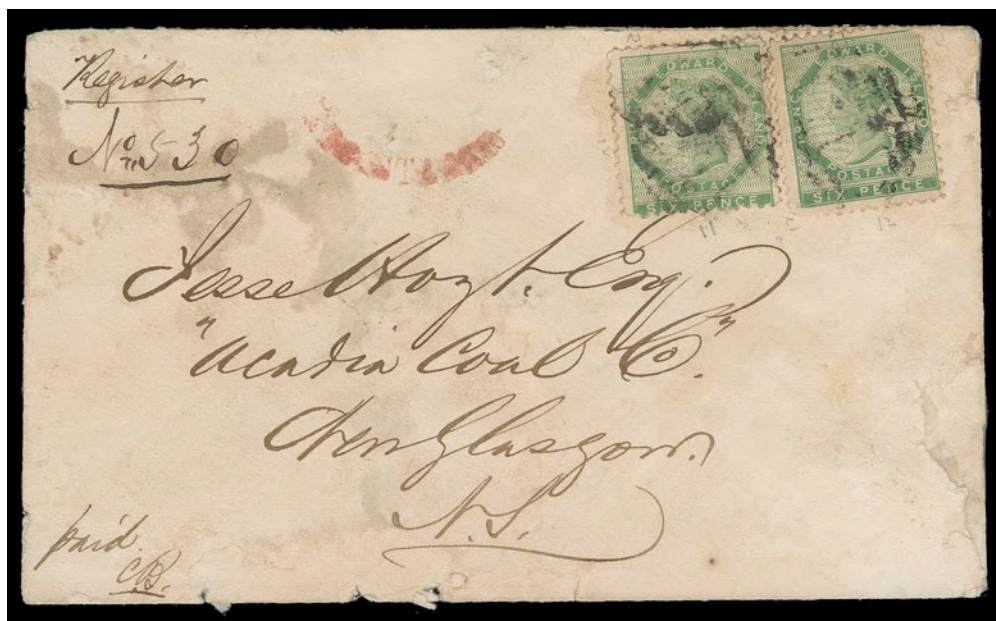 Register
No. 530
EDWARD ISLAND
POSTAGE
SIX PENCE
EDWARD ISLAND
POSTAGE
SIX PENCE
11
12
Jesse Hoyt. Esq.
"Acadia Coal Co"
New Glasgow.
N.S.
paid
CB.